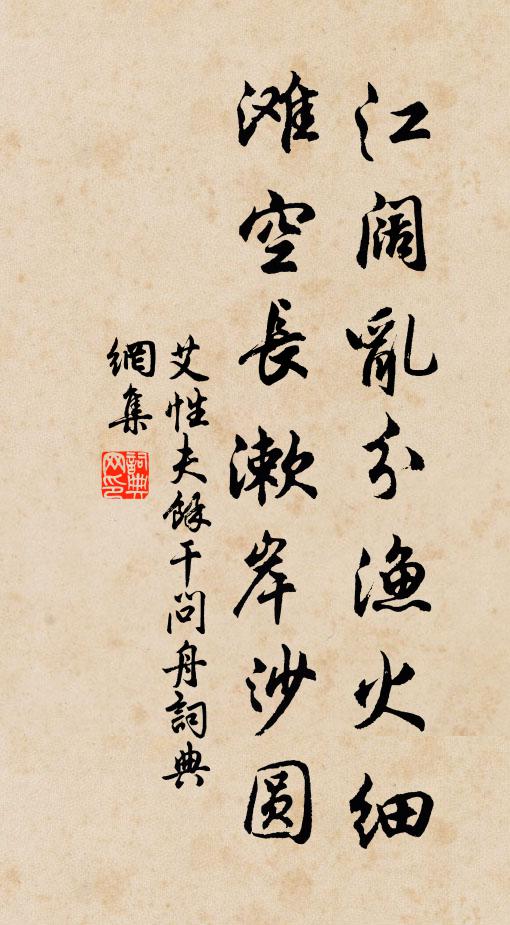 江阔亂分渔火细
滩空長漱岸沙圆
艾性夫餘干問舟詞典
網集
詞典網印